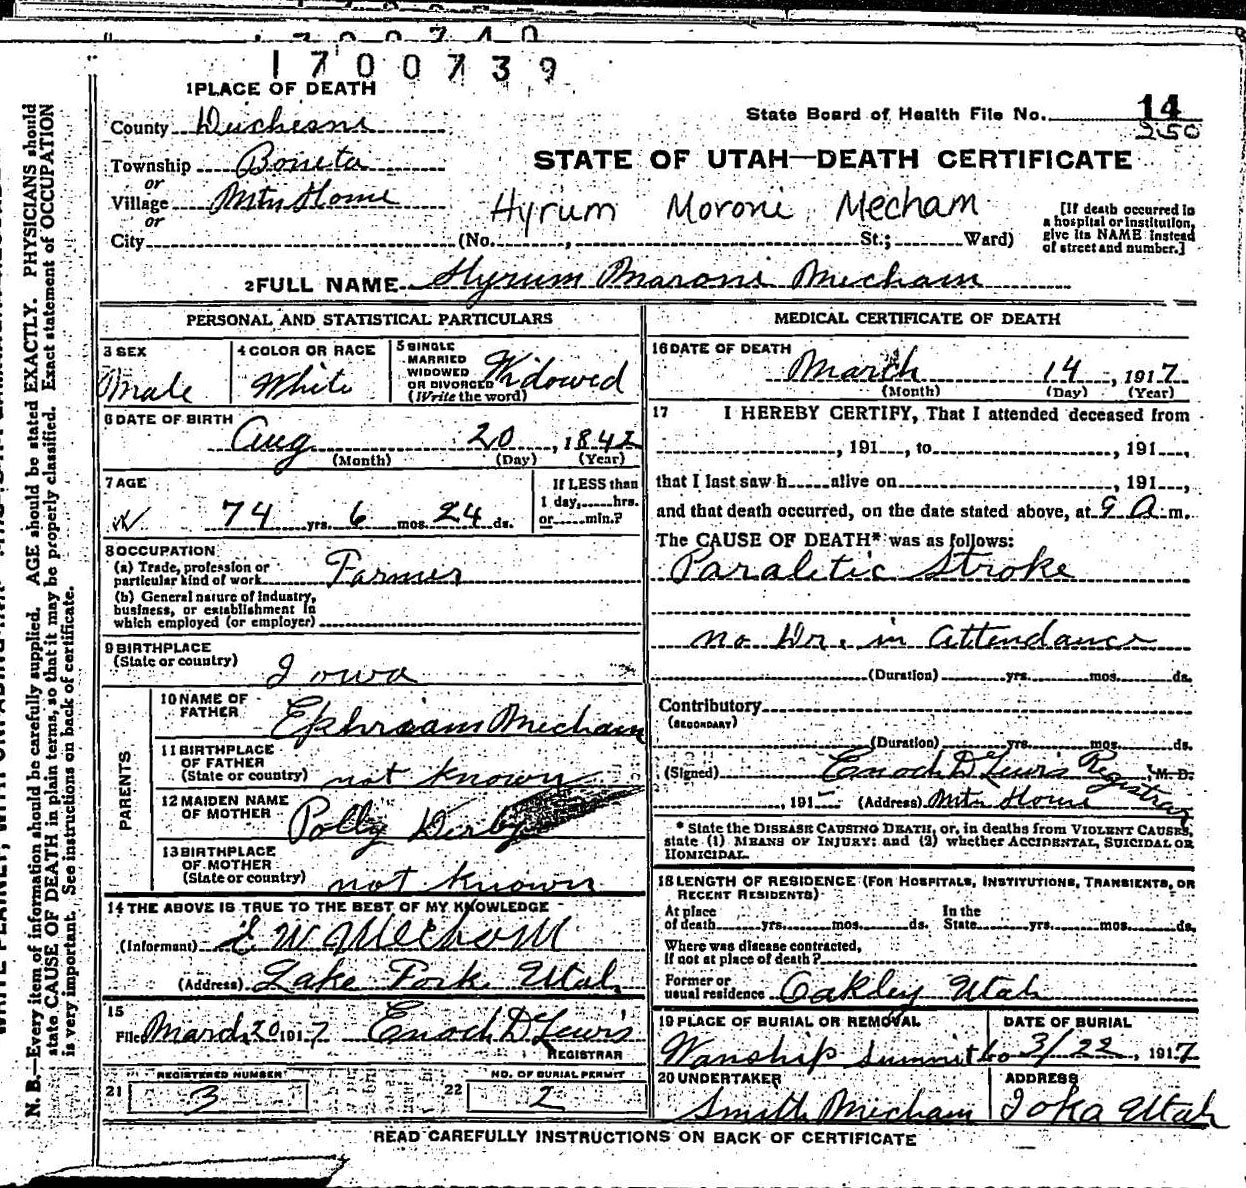 1700740
1700739
1 PLACE OF DEATH
State Board of Health File No. 14
250
County Duchesne
STATE OF UTAH—DEATH CERTIFICATE
Township Boneta
or
Village Mtn Home
Hyrum Moroni Mecham
or
City (No. , St.; Ward)
[If death occurred in
a hospital or institution,
give its NAME instead
of street and number.]
2 FULL NAME Hyrum Maroni Mecham
PERSONAL AND STATISTICAL PARTICULARS
3 SEX
Male
4 COLOR OR RACE
White
5 SINGLE
MARRIED
WIDOWED
OR DIVORCED
(Write the word)
Widowed
6 DATE OF BIRTH
Aug 20, 1842
(Month) (Day) (Year)
7 AGE
74 yrs. 6 mos. 24 ds.
If LESS than
1 day, hrs.
or min.?
8 OCCUPATION
(a) Trade, profession or
particular kind of work Farmer
(b) General nature of industry,
business, or establishment in
which employed (or employer)
9 BIRTHPLACE
(State or country) Iowa
PARENTS
10 NAME OF
FATHER Ephraiam Mecham
11 BIRTHPLACE
OF FATHER
(State or country) not known
12 MAIDEN NAME
OF MOTHER Polly Derby
13 BIRTHPLACE
OF MOTHER
(State or country) not known
14 THE ABOVE IS TRUE TO THE BEST OF MY KNOWLEDGE
(Informant) Mecham
(Address) Lake Fork, Utah
15
Filed March 20 1917 Enoch D Lewis
REGISTRAR
REGISTERED NUMBER
21 3
NO. OF BURIAL PERMIT
22 2
MEDICAL CERTIFICATE OF DEATH
16 DATE OF DEATH
March 14, 1917
(Month) (Day) (Year)
17 I HEREBY CERTIFY, That I attended deceased from
, 191 , to , 191 ,
that I last saw h alive on , 191 ,
and that death occurred, on the date stated above, at 9 A. m.
The CAUSE OF DEATH* was as follows:
Paralitic Stroke
no Dr. in attendance
(Duration) yrs. mos. ds.
Contributory
(SECONDARY)
(Duration) yrs. mos. ds.
(Signed) Enoch D Lewis Registrar, M. D.
, 191 (Address) Mtn Home
* State the DISEASE CAUSING DEATH, or, in deaths from VIOLENT CAUSES,
state (1) MEANS OF INJURY; and (2) whether ACCIDENTAL, SUICIDAL OR
HOMICIDAL.
18 LENGTH OF RESIDENCE (FOR HOSPITALS, INSTITUTIONS, TRANSIENTS, OR
RECENT RESIDENTS)
At place
of death yrs. mos. ds.
In the
State yrs. mos. ds.
Where was disease contracted,
if not at place of death?
Former or
usual residence Oakley Utah
19 PLACE OF BURIAL OR REMOVAL
Wanship Summit Co
DATE OF BURIAL
3/22, 1917
20 UNDERTAKER
Smith Mecham
ADDRESS
Ioka Utah
READ CAREFULLY INSTRUCTIONS ON BACK OF CERTIFICATE
N. B.—Every item of information should be carefully supplied. AGE should be stated EXACTLY. PHYSICIANS should
state CAUSE OF DEATH in plain terms, so that it may be properly classified. Exact statement of OCCUPATION
is very important. See instructions on back of certificate.